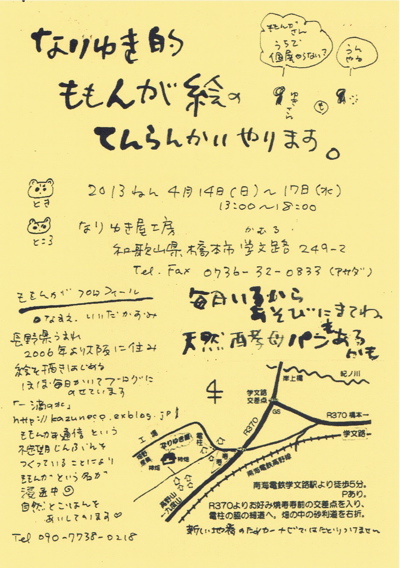 ももんがさん
うちで
個展やらない?
うん
やる
なりゆき的
ももんが絵の
てんらんかいやります。
とき
2013ねん 4月14日(日)〜17日(水)
13:00〜18:00
ところ
なりゆき屋工房
かむろ
和歌山県橋本市学文路249-2
Tel. Fax 0736-32-0833 (アサダ)
ももんがプロフィール
なまえ、いいだかずみ
長野県うまれ
2006年より大阪に住み
絵を描きはじめる
ほぼ毎日かいてブログに
のせています
「一滴の水」
http://kazuneco.exblog.jp
ももんが通信という
不定期しんぶんを
つくっていることにより
ももんがという名が
浸透中
自然とごはんを
あいしています
Tel 090-7738-0218
毎日いるから
あそびにきてね
天然酵母パンもあるかも
学文路
交差点
岸上橋
紀ノ川
GS
R370
R370 橋本→
学文路
工場
電柱
なりゆき屋
柿畑
寿寿
高野山
九度山
南海電鉄高野線
南海電鉄学文路駅より徒歩5分。
Pあり。
R370よりお好み焼寿寿前の交差点を入り、
電柱の脇の細道へ。畑の中の砂利道を右折。
新しい地番のためカーナビではたどりつけません